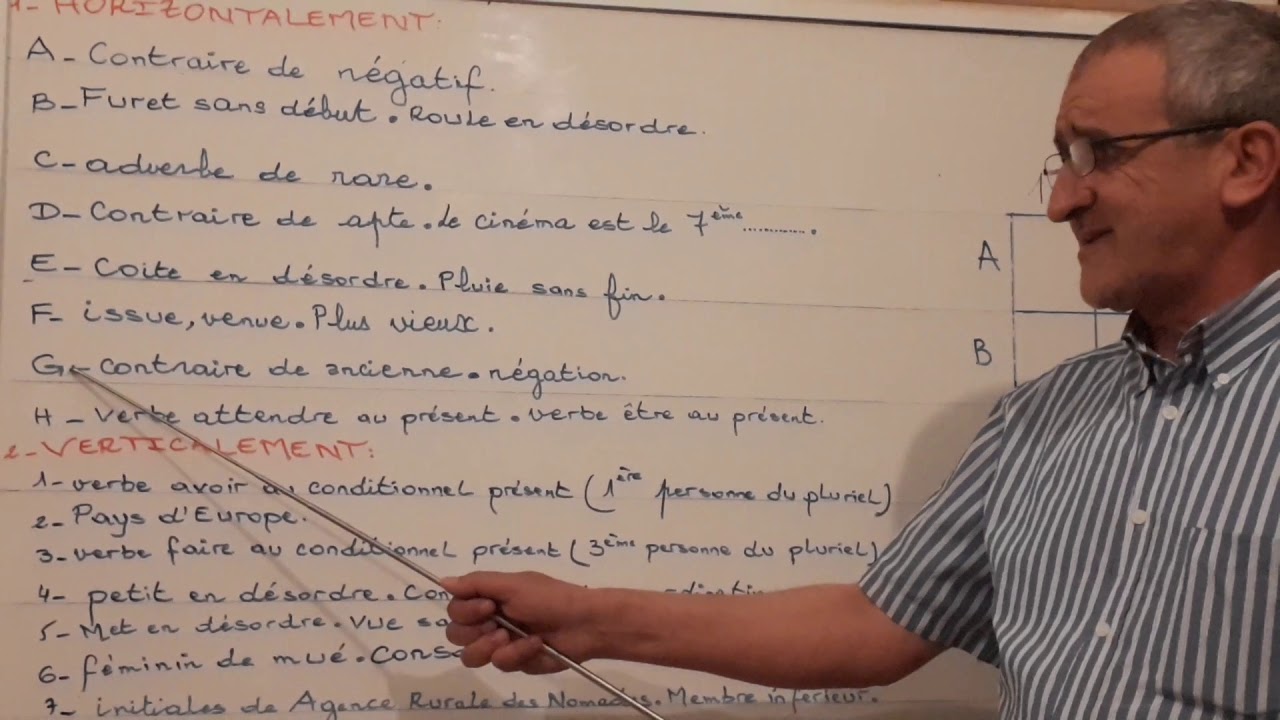 1- HORIZONTALEMENT:
A- Contraire de négatif.
B- Furet sans début. Roule en désordre.
C- adverbe de rare.
D- Contraire de apte. Le cinéma est le 7ème ............
E- Coite en désordre. Pluie sans fin.
F- issue, venue. Plus vieux.
G- contraire de ancienne. négation.
H- Verbe attendre au présent. verbe être au présent.
2- VERTICALEMENT:
1- verbe avoir au conditionnel présent (1ère personne du pluriel)
2- Pays d'Europe.
3- verbe faire au conditionnel présent (3ème personne du pluriel)
4- petit en désordre.
5- Met en désordre. Vue
6- féminin de mué.
7- initiales de Agence Rurale des Nomades. Membre inférieur.
A
B